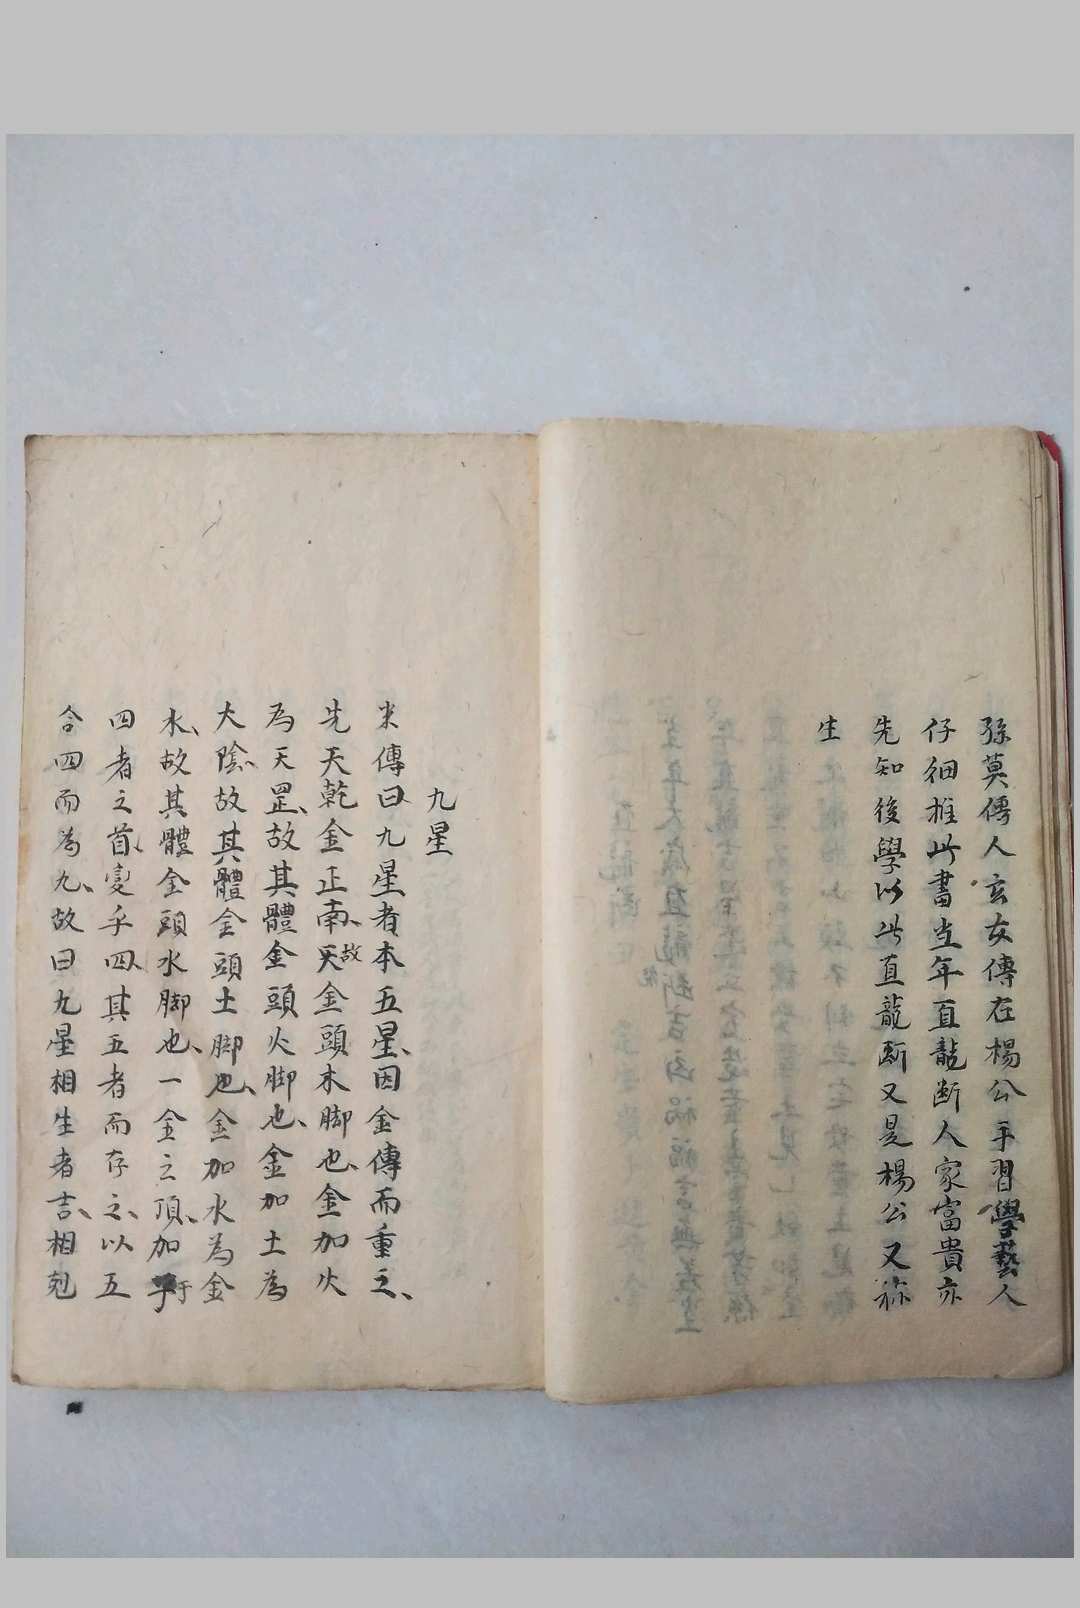 孫莫傳人玄女傳在楊公手習學藝人
仔細推此書当年直龍断人家富貴亦
先知後學以此直龍断又是楊公又称
生
九星
米傳曰九星者本五星因金傳而重之
先天乾金正南故天金頭木脚也金加火
為天罡故其體金頭火脚也金加土為
大陰故其體金頭土脚也金加水為金
水故其體金頭水脚也一金之頂加于
四者之首变乎四其五者而存之以五
合四而為九故曰九星相生者吉相剋